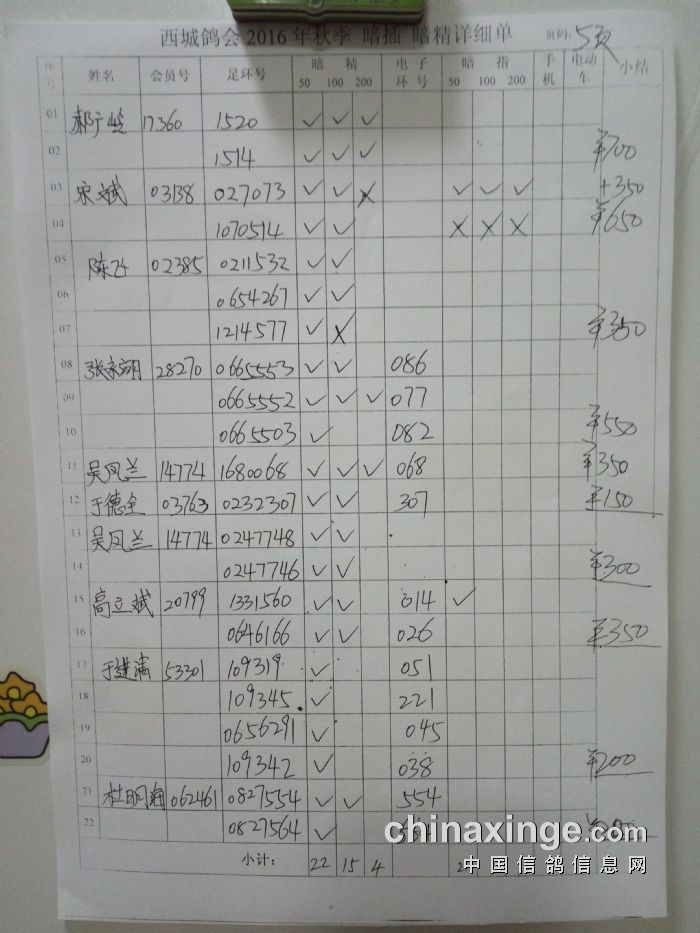 西城鸽会 2016 年秋季 暗插 暗精详细单 页码: 5页
序号 姓名 会员号 足环号 暗 精 电子环号 暗 指 手机 电动车 小结
50 100 200 50 100 200
01 郝 17360 1520 ✓ ✓ ✓
02 1514 ✓ ✓ ✓ ¥700
03 宋斌 03138 027073 ✓ ✓ ✗ ✓ ✓ ✓ +350
04 1070514 ✓ ✓ ✗ ✗ ✗ ¥650
05 陈飞 02385 0211532 ✓ ✓
06 0654267 ✓ ✓
07 1214577 ✓ ✗ ¥350
08 张永翊 28270 0665553 ✓ ✓ 086
09 0665552 ✓ ✓ ✓ 077
10 0665503 ✓ 082 ¥550
11 吴凤兰 14774 1680068 ✓ ✓ ✓ 068 ¥350
12 于德全 03763 0232307 ✓ ✓ 307 ¥150
13 吴凤兰 14774 0247748 ✓ ✓
14 0247746 ✓ ✓ ¥300
15 高立斌 20799 1331560 ✓ ✓ 014 ✓
16 0646166 ✓ ✓ 026 ¥350
17 于进满 53301 109319 ✓ 051
18 109345 ✓ 221
19 0656291 ✓ 045
20 109342 ✓ 038 ¥200
21 杜明海 062461 0827554 ✓ ✓ 554
22 0827564 ✓
小计: 22 15 4 2
chinaxinge.com
中国信鸽信息网